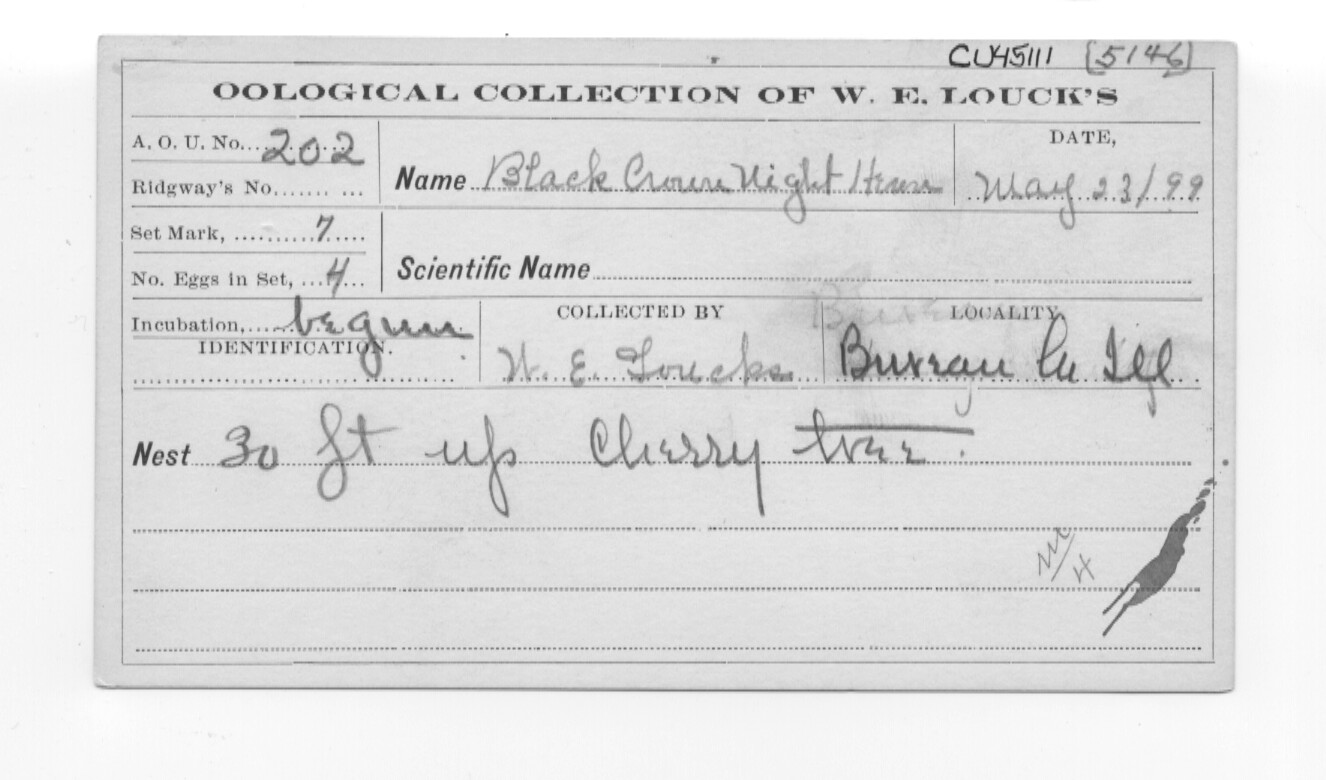 CU45111 [5146]
OOLOGICAL COLLECTION OF W. E. LOUCK'S
A. O. U. No. 202
Ridgway's No.
Name Black Crown Night Heron
DATE,
May 23/99
Set Mark, 7
No. Eggs in Set, 4
Scientific Name
Incubation, begun
IDENTIFICATION.
COLLECTED BY
W. E. Loucks
LOCALITY,
Bureau Co Ill
Nest 30 ft up Cherry tree.
4